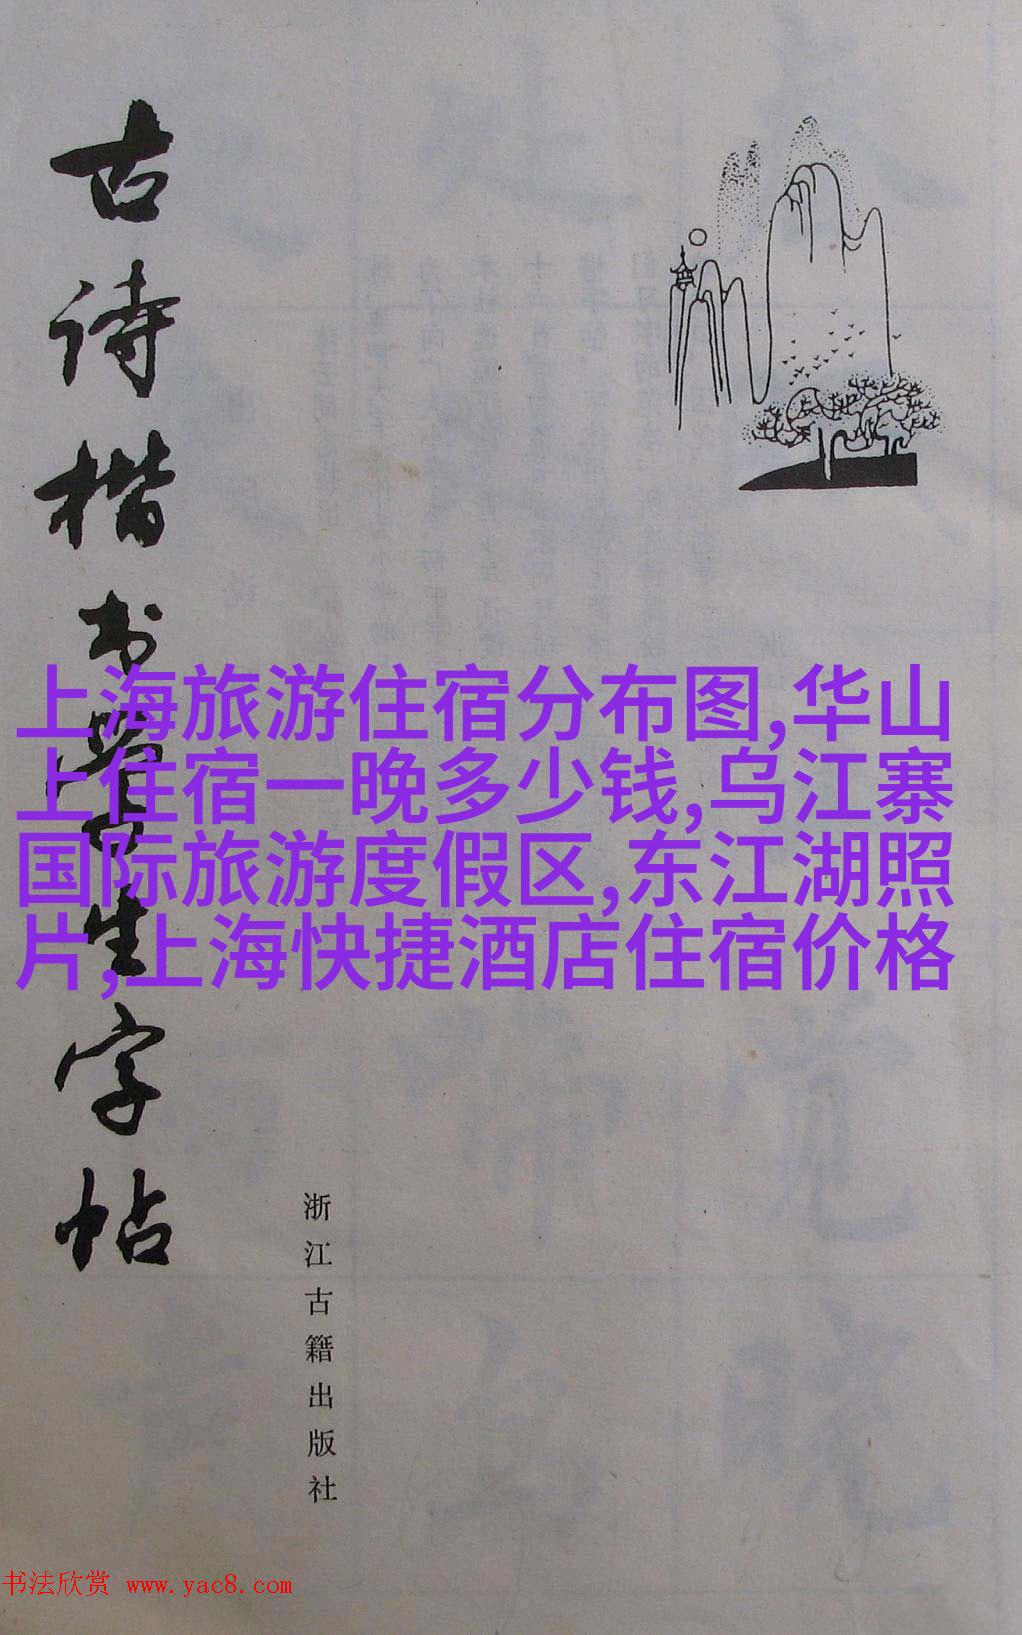 古诗楷书学生字帖
上海旅游住宿分布图,华山
上住宿一晚多少钱,乌江寨
国际旅游度假区,东江湖照
片,上海快捷酒店住宿价格
浙江古籍出版社
书法欣赏 www.yac8.com